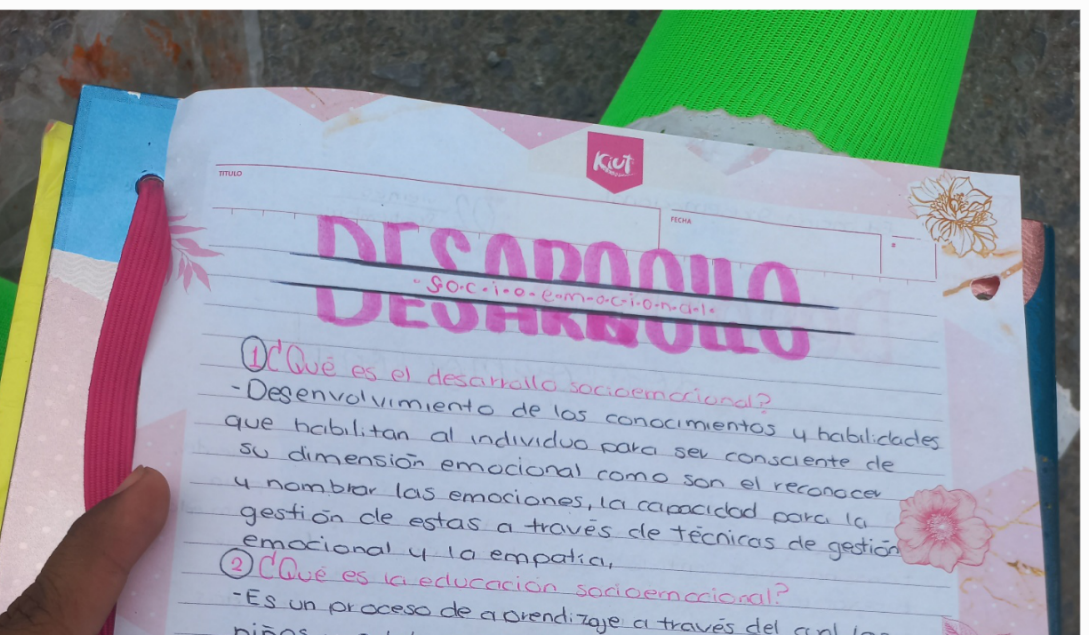 Kiut
TITULO
FECHA
DESARROLLO
-S-o-c-i-o-e-m-o-c-i-o-n-a-l-
① ¿Qué es el desarrollo socioemocional?
-Desenvolvimiento de los conocimientos y habilidades
que habilitan al individuo para ser consciente de
su dimensión emocional como son el reconocer
y nombrar las emociones, la capacidad para la
gestión de estas a través de técnicas de gestión
emocional y la empatía,
② ¿Qué es la educación socioemocional?
-Es un proceso de aprendizaje a través del
niños